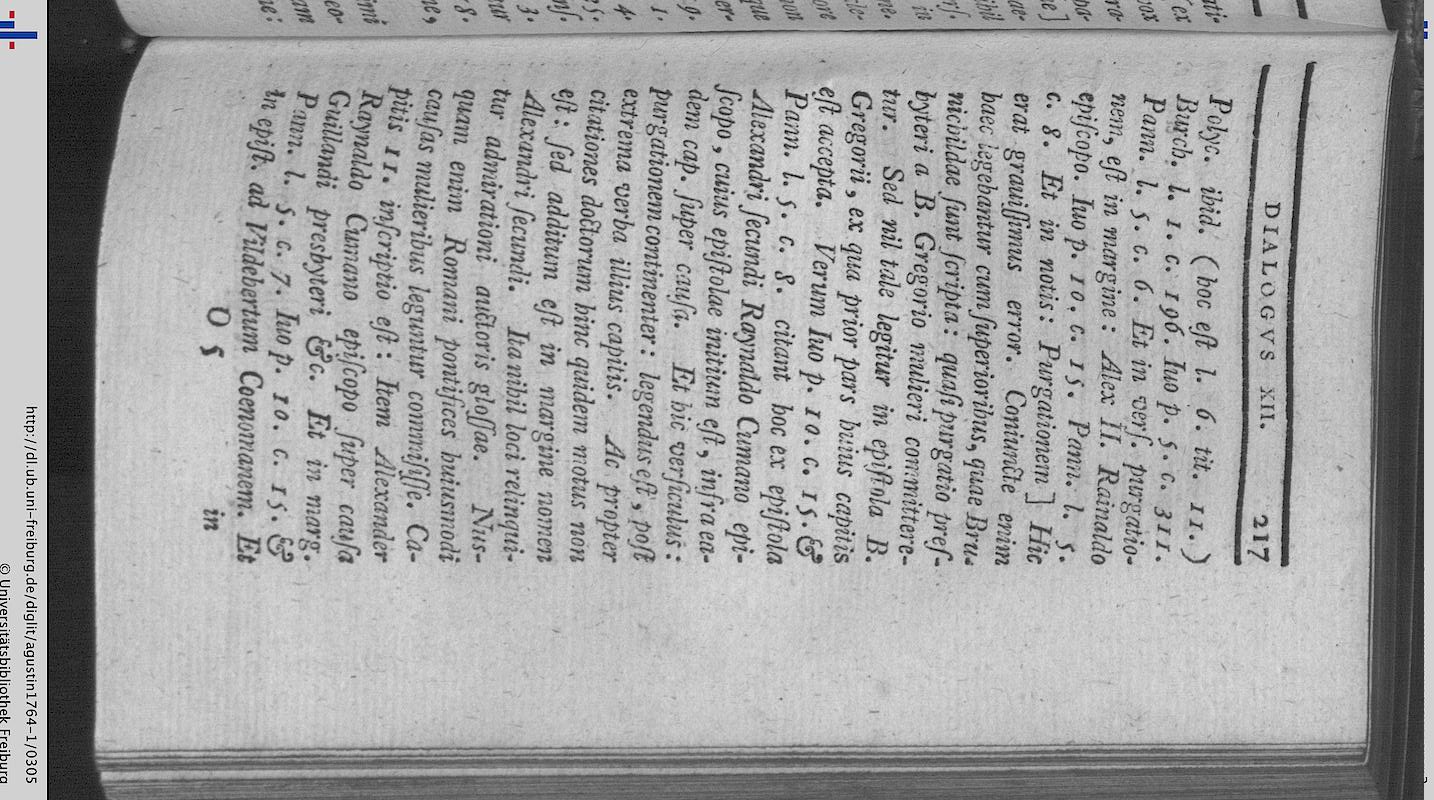 DIALOGVS XII. 217
Polyc. ibid. (hoc eſt l. 6. tit. 11.)
Burch. l. 1. c. 196. Iuo p. 5. c. 311.
Pann. l. 5. c. 6. Et in verſ. purgatio-
nem, eſt in margine: Alex II. Rainaldo
epiſcopo. Iuo p. 10. c. 15. Pann. l. 5.
c. 8. Et in notis: Purgationem] Hic
erat grauiſſimus error. Coniuncte enim
haec legebantur cum ſuperioribus, quae Bru-
nichildae ſunt ſcripta: quaſi purgatio preſ-
byteri a B. Gregorio mulieri committere-
tur. Sed nil tale legitur in epiſtola B.
Gregorii, ex qua prior pars huius capitis
eſt accepta. Verum Iuo p. 10. c. 15. &
Pann. l. 5. c. 8. citant hoc ex epiſtola
Alexandri ſecundi Raynaldo Cumano epi-
ſcopo, cuius epiſtolae initium eſt, infra ea-
dem cap. ſuper cauſa. Et hic verſiculus:
purgationem continenter: legendus eſt, poſt
extrema verba illius capitis. Ac propter
citationes doctorum hinc quidem motus non
eſt: ſed additum eſt in margine nomen
Alexandri ſecundi. Ita nihil loci relinqui-
tur admirationi auctoris gloſſae. Nus-
quam enim Romani pontifices huiusmodi
cauſas mulieribus leguntur commiſiſſe. Ca-
pitis 11. inſcriptio eſt: Item Alexander
Raynaldo Cumano epiſcopo ſuper cauſa
Guillandi presbyteri &c. Et in marg.
Pann. l. 5. c. 7. Iuo p. 10. c. 15. &
in epiſt. ad Vildebertum Coenomanem. Et
O 5 in
http://dl.ub.uni-freiburg.de/diglit/agustin1764-1/0305
© Universitätsbibliothek Freiburg